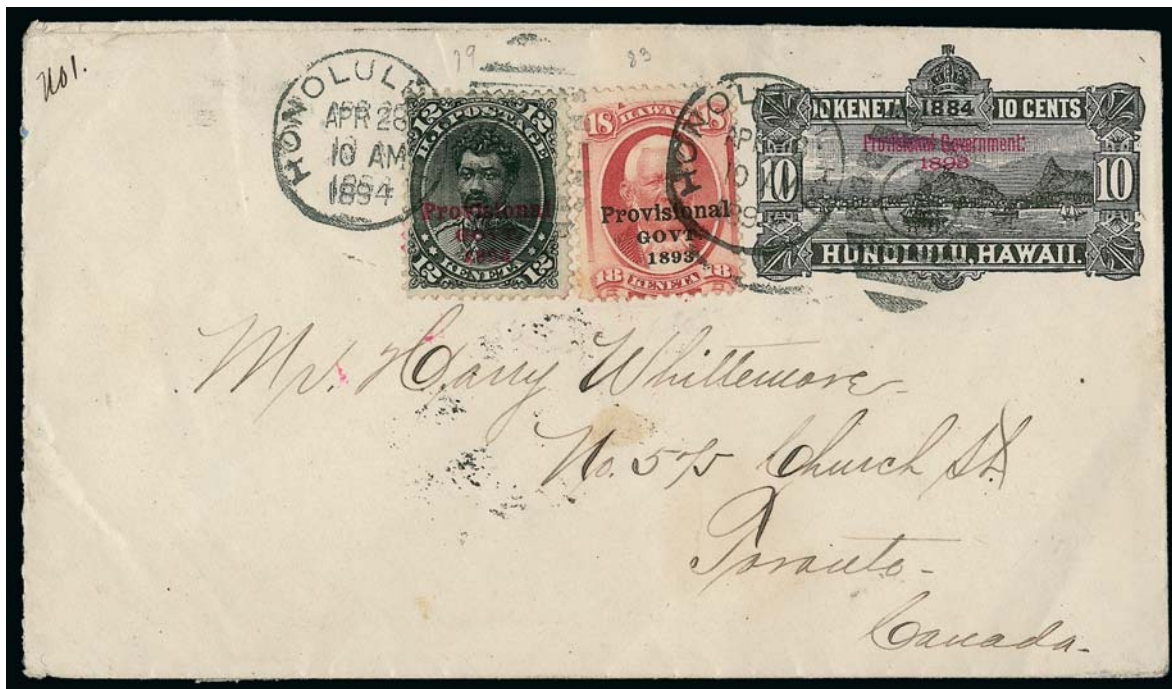 No 1.
79 83
HONOLULU
APR 28
10 AM
1894
12 12
HOI POSTAGE
Provisional
GOVT.
1893
12 KENETA 12
18 HAWAII 18
Provisional
GOVT.
1893
18 KENETA 18
HONOLULU
10 KENETA 1884 10 CENTS
Provisional Government
1893
10 10
HONOLULU, HAWAII.
Mr. Harry Whittemore
No. 575 Church St.
Toronto-
Canada.